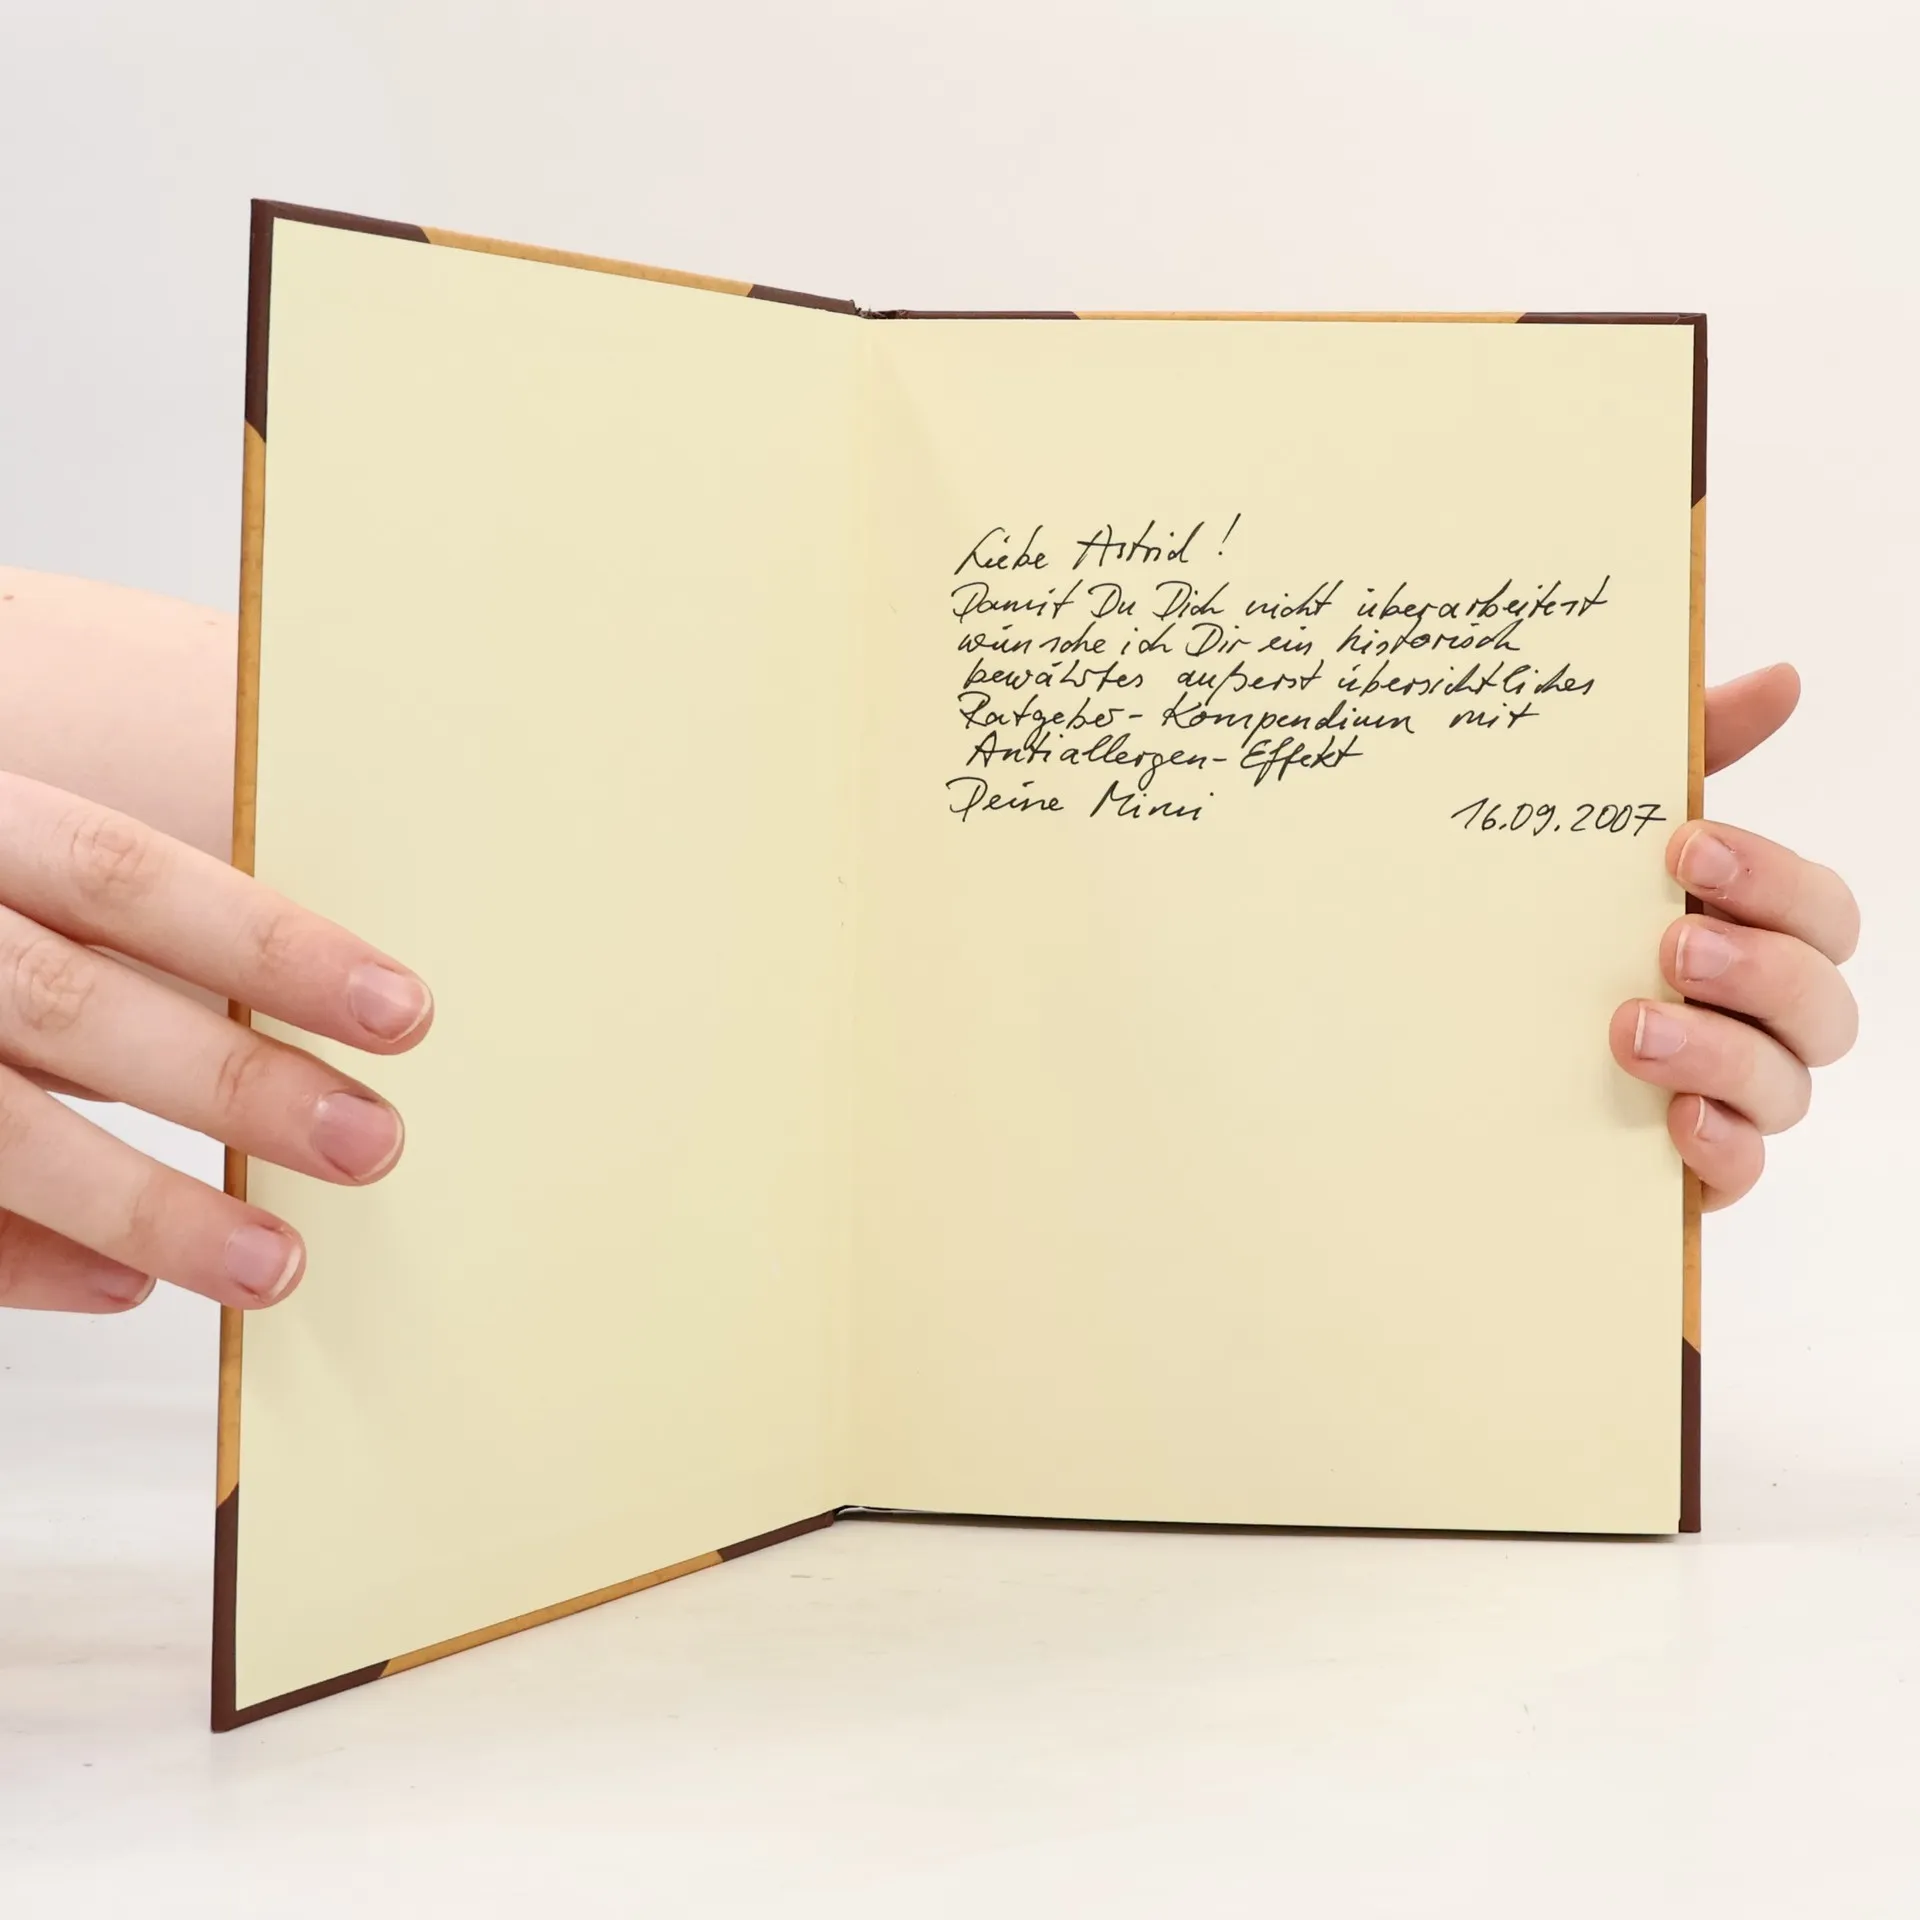 Liebe Astrid!
Damit Du Dich nicht überarbeitest
wünsche ich Dir ein historisch
bewährtes äußerst übersichtliches
Ratgeber-Kompendium mit
Antiallergen-Effekt
Deine Mimi 16.09.2007